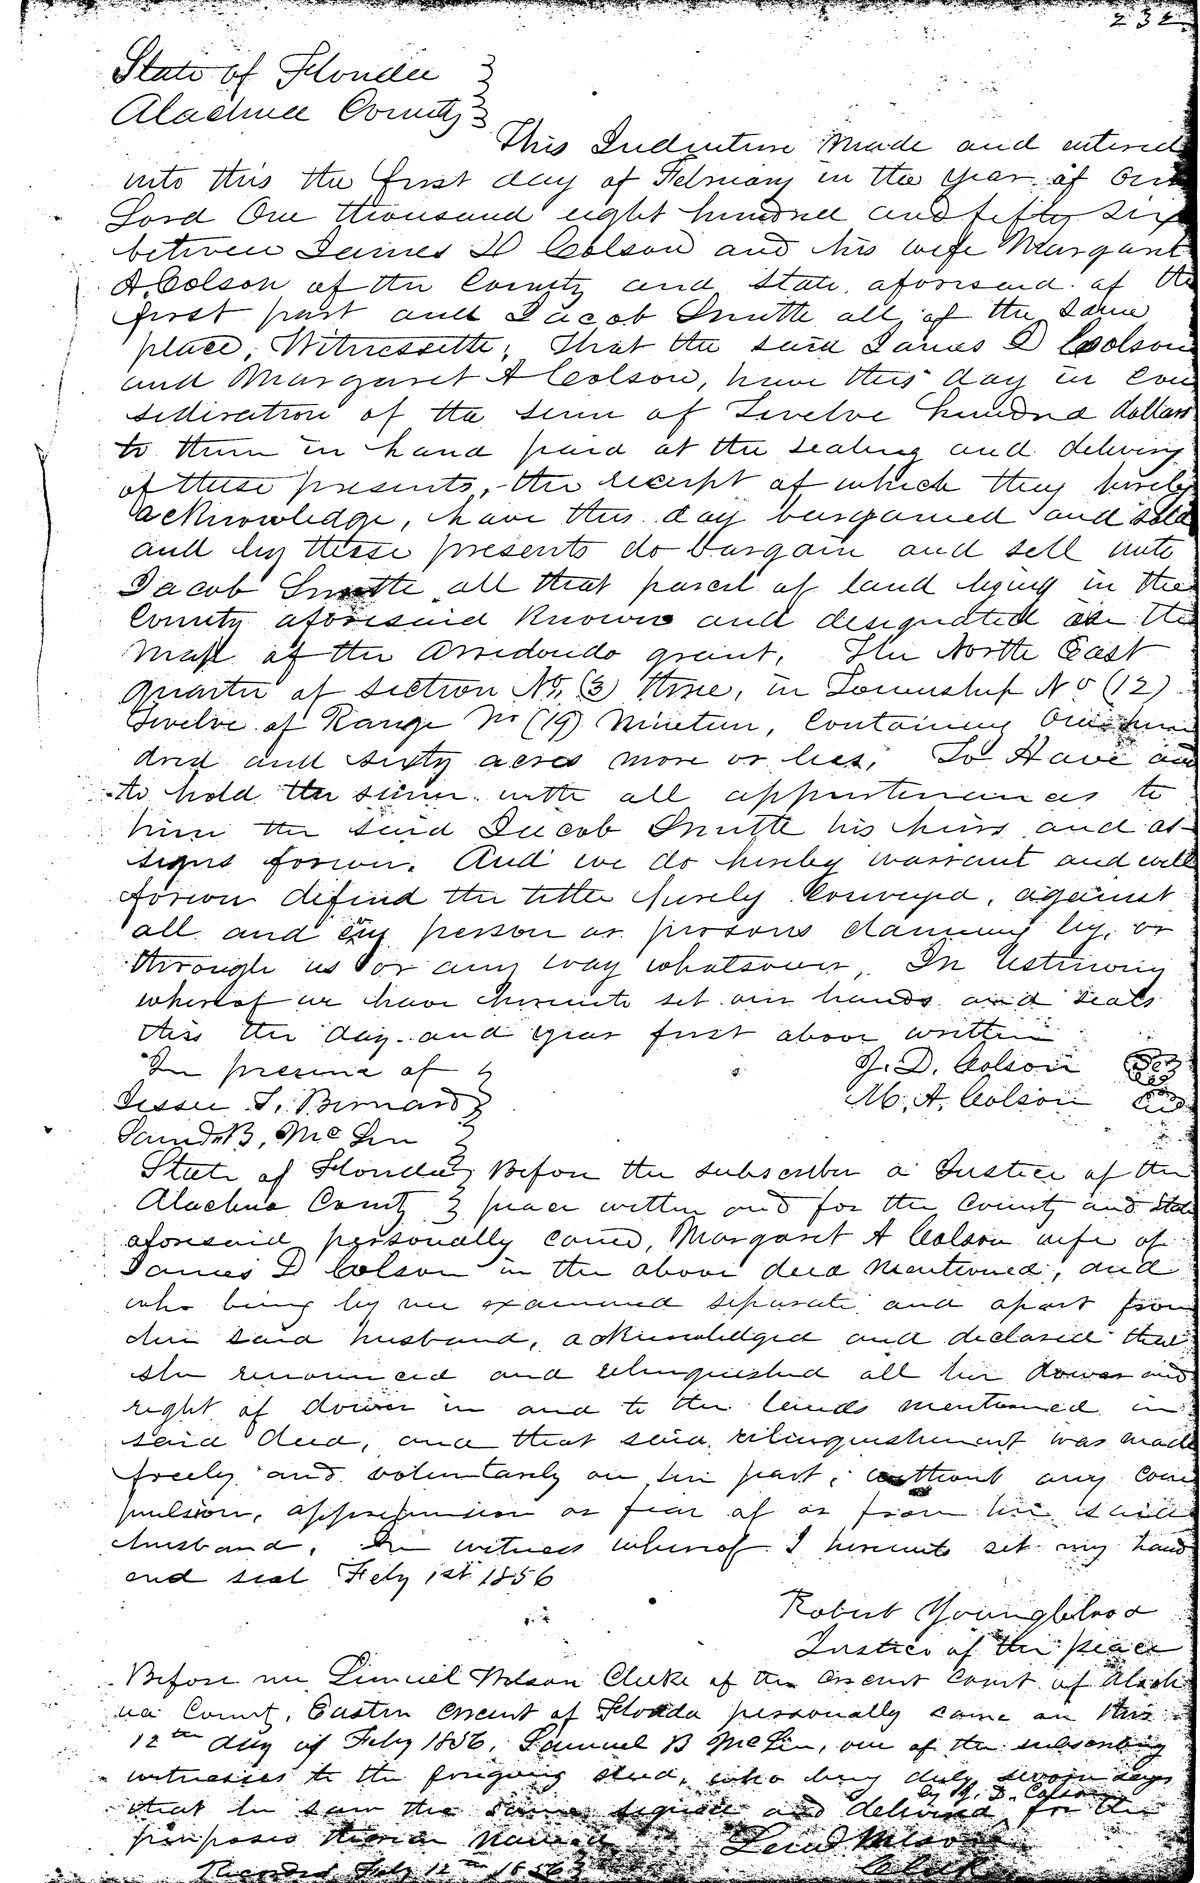 232
State of Florida
Alachua County
This Indenture made and entered
into this the first day of February in the year of our
Lord One thousand eight hundred and fifty six
between James D Colson and his wife Margaret
A. Colson of the County and State aforesaid of the
first part and Jacob Smith all of the same
place, Witnesseth; That the said James D Colson
and Margaret A Colson, have this day in con
sideration of the sum of Twelve hundred dollars
to them in hand paid at the sealing and delivery
of these presents, the receipt of which they hereby
acknowledge, have this day bargained and sold
and by these presents do bargain and sell unto
Jacob Smith all that parcel of land lying in the
County aforesaid known and designated on the
map of the Arredondo grant, The North East
quarter of section No. (3) three, in Township No (12)
Twelve of Range No (19) Nineteen, containing One hun
dred and sixty acres more or less. To Have and
to hold the same with all appurtenances to
him the said Jacob Smith his heirs and as
signs forever. And we do hereby warrant and will
forever defend the title hereby conveyed, against
all and any person or persons claiming by, or
through us or any way whatsoever, In testimony
whereof we have hereunto set our hands and seals
this the day and year first above written
In presence of
J. D. Colson
Jessee T. Bernard
M. A. Colson
Saml B. McLin
State of Florida Before the subscriber a Justice of the
Alachua County peace within and for the County and State
aforesaid personally came, Margaret A Colson wife of
James D Colson in the above deed mentioned, and
who being by me examined separate and apart from
her said husband, acknowledged and declared that
she renounced and relinquished all her dower and
right of dower in and to the lands mentioned in
said deed, and that said relinquishment was made
freely and voluntarily on her part, without any com
pulsion, apprehension or fear of or from her said
husband. In witness whereof I hereunto set my hand
and seal Feby 1st 1856
Robert Youngblood
Justice of the peace
Before me Lemuel Wilson Clerke of the circuit court of Alach
ua County, Eastern circuit of Florida personally came on this
12th day of Feby 1856, Samuel B McLin, one of the subscribing
witnesses to the foregoing deed, who being duly sworn says
by J. D. Colson
that he saw the same signed and delivered for the
purposes therein named
Leml Wilson
Recorded Feby 12th 1856
Clerk